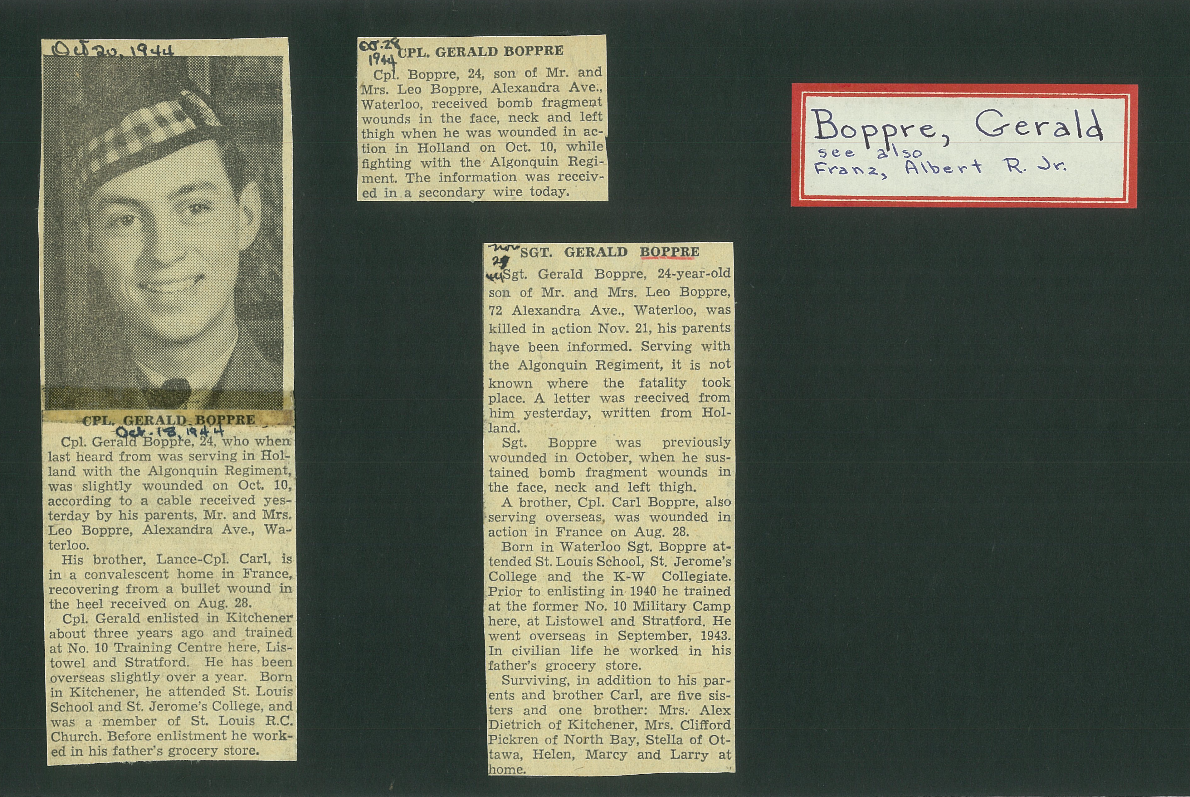 Oct 20, 1944
CPL. GERALD BOPPRE
Oct. 18, 1944
Cpl. Gerald Boppre, 24, who when
last heard from was serving in Hol-
land with the Algonquin Regiment,
was slightly wounded on Oct. 10,
according to a cable received yes-
terday by his parents, Mr. and Mrs.
Leo Boppre, Alexandra Ave., Wa-
terloo.
His brother, Lance-Cpl. Carl, is
in a convalescent home in France,
recovering from a bullet wound in
the heel received on Aug. 28.
Cpl. Gerald enlisted in Kitchener
about three years ago and trained
at No. 10 Training Centre here, Lis-
towel and Stratford. He has been
overseas slightly over a year. Born
in Kitchener, he attended St. Louis
School and St. Jerome's College, and
was a member of St. Louis R.C.
Church. Before enlistment he work-
ed in his father's grocery store.
Oct. 28
1944
CPL. GERALD BOPPRE
Cpl. Boppre, 24, son of Mr. and
Mrs. Leo Boppre, Alexandra Ave.,
Waterloo, received bomb fragment
wounds in the face, neck and left
thigh when he was wounded in ac-
tion in Holland on Oct. 10, while
fighting with the Algonquin Regi-
ment. The information was receiv-
ed in a secondary wire today.
Nov
29
44
SGT. GERALD BOPPRE
Sgt. Gerald Boppre, 24-year-old
son of Mr. and Mrs. Leo Boppre,
72 Alexandra Ave., Waterloo, was
killed in action Nov. 21, his parents
have been informed. Serving with
the Algonquin Regiment, it is not
known where the fatality took
place. A letter was reecived from
him yesterday, written from Hol-
land.
Sgt. Boppre was previously
wounded in October, when he sus-
tained bomb fragment wounds in
the face, neck and left thigh.
A brother, Cpl. Carl Boppre, also
serving overseas, was wounded in
action in France on Aug. 28.
Born in Waterloo Sgt. Boppre at-
tended St. Louis School, St. Jerome's
College and the K-W Collegiate.
Prior to enlisting in 1940 he trained
at the former No. 10 Military Camp
here, at Listowel and Stratford. He
went overseas in September, 1943.
In civilian life he worked in his
father's grocery store.
Surviving, in addition to his par-
ents and brother Carl, are five sis-
ters and one brother: Mrs. Alex
Dietrich of Kitchener, Mrs. Clifford
Pickren of North Bay, Stella of Ot-
tawa, Helen, Marcy and Larry at
home.
Boppre, Gerald
see also
Franz, Albert R. Jr.